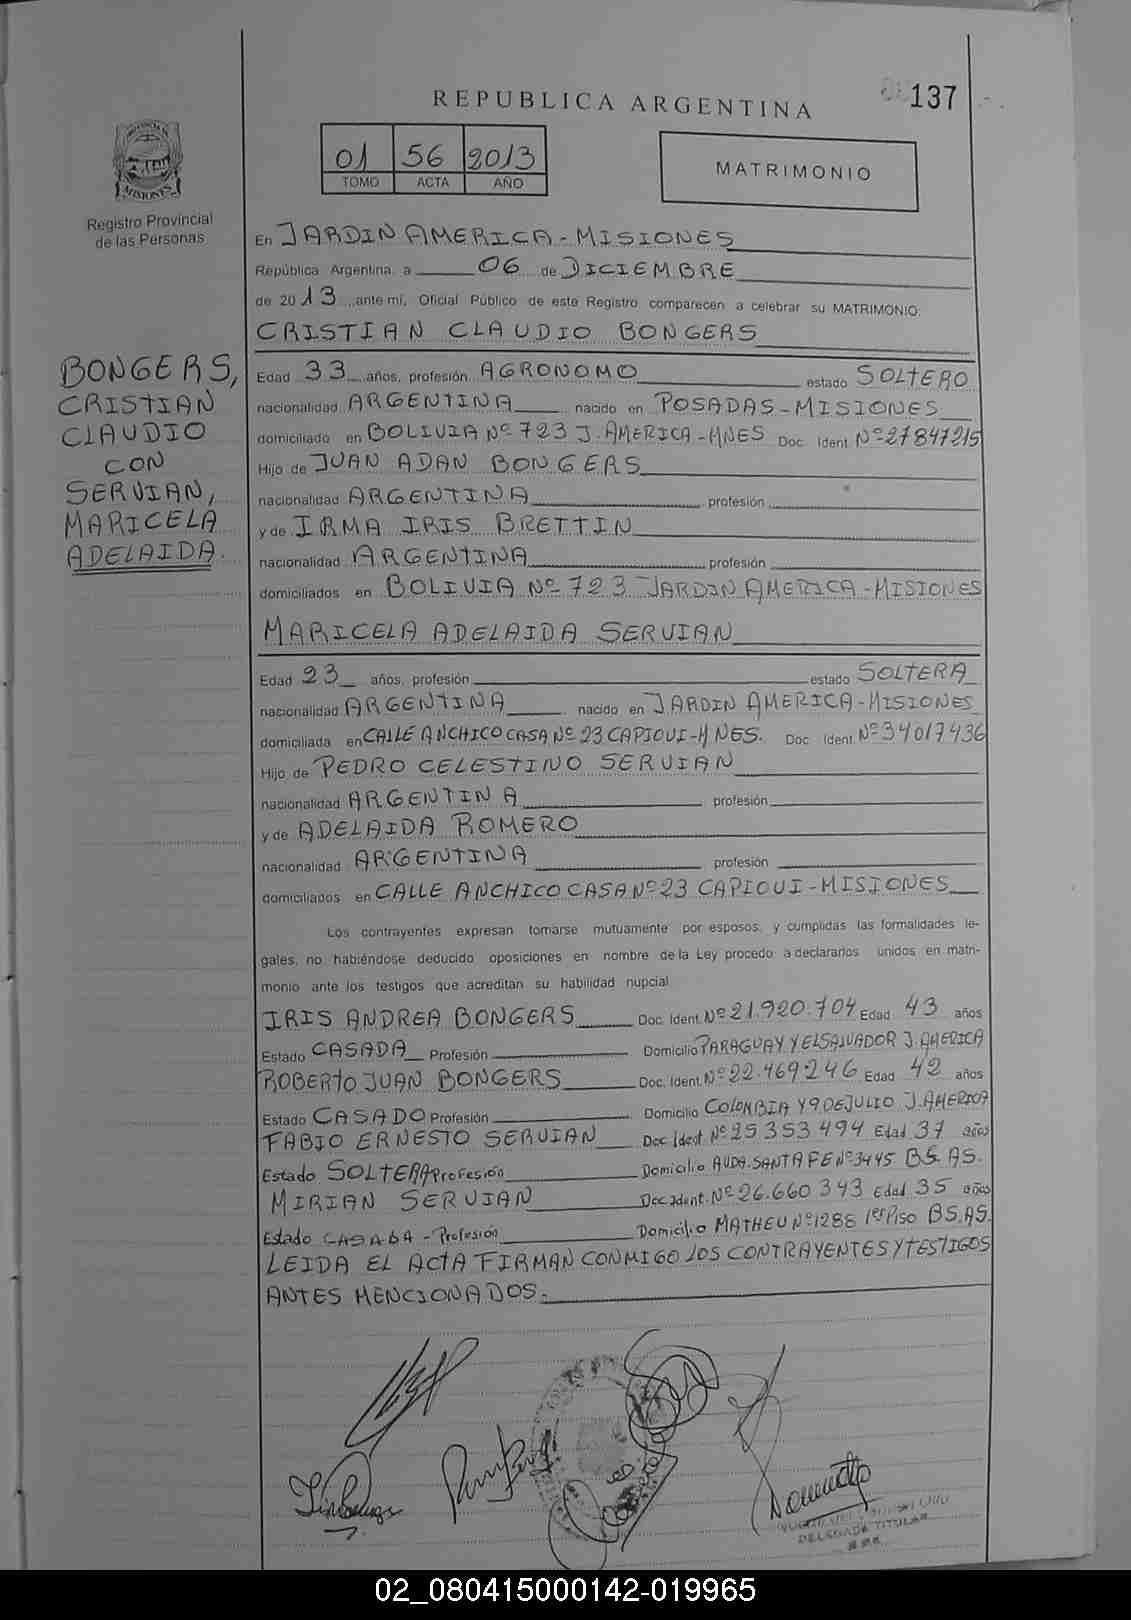 REPUBLICA ARGENTINA
137
01 56 2013
TOMO ACTA AÑO
MATRIMONIO
PROVINCIA DE
MISIONES
Registro Provincial
de las Personas
BONGERS,
CRISTIAN
CLAUDIO
CON
SERVIAN,
MARICELA
ADELAIDA.
En JARDIN AMERICA - MISIONES
República Argentina, a 06 de DICIEMBRE
de 2013 ante mí, Oficial Público de este Registro comparecen a celebrar su MATRIMONIO:
CRISTIAN CLAUDIO BONGERS
Edad 33 años, profesión AGRONOMO estado SOLTERO
nacionalidad ARGENTINA nacido en POSADAS - MISIONES
domiciliado en BOLIVIA Nº 723 J. AMERICA - MNES Doc. Ident. Nº 27847215
Hijo de JUAN ADAN BONGERS
nacionalidad ARGENTINA profesión
y de IRMA IRIS BRETTIN
nacionalidad ARGENTINA profesión
domiciliados en BOLIVIA Nº 723 JARDIN AMERICA - MISIONES
MARICELA ADELAIDA SERVIAN
Edad 23 años, profesión estado SOLTERA
nacionalidad ARGENTINA nacido en JARDIN AMERICA - MISIONES
domiciliada en CALLE ANCHICO CASA Nº 23 CAPIOUI - MNES. Doc. Ident. Nº 34017436
Hijo de PEDRO CELESTINO SERVIAN
nacionalidad ARGENTINA profesión
y de ADELAIDA ROMERO
nacionalidad ARGENTINA profesión
domiciliados en CALLE ANCHICO CASA Nº 23 CAPIOUI - MISIONES
Los contrayentes expresan tomarse mutuamente por esposos, y cumplidas las formalidades le-
gales, no habiéndose deducido oposiciones en nombre de la Ley procedo a declararlos unidos en matri-
monio ante los testigos que acreditan su habilidad nupcial
IRIS ANDREA BONGERS Doc. Ident. Nº 21.920.704 Edad 43 años
Estado CASADA Profesión Domicilio PARAGUAY Y EL SALVADOR J. AMERICA
ROBERTO JUAN BONGERS Doc. Ident. Nº 22.469.246 Edad 42 años
Estado CASADO Profesión Domicilio COLOMBIA Y 9 DE JULIO J. AMERICA
FABIO ERNESTO SERVIAN Doc Ident. Nº 25 353 494 Edad 37 años
Estado SOLTERA Profesión Domicilio AVDA. SANTA FE Nº 3445 BS. AS.
MIRIAN SERVIAN Doc Ident. Nº 26.660 343 Edad 35 años
Estado CASADA - Profesión Domicilio MATHEU Nº 1286 1er PISO BS. AS.
LEIDA EL ACTA FIRMAN CONMIGO LOS CONTRAYENTES Y TESTIGOS
ANTES MENCIONADOS.
DELEGADA TITULAR
02_080415000142-019965